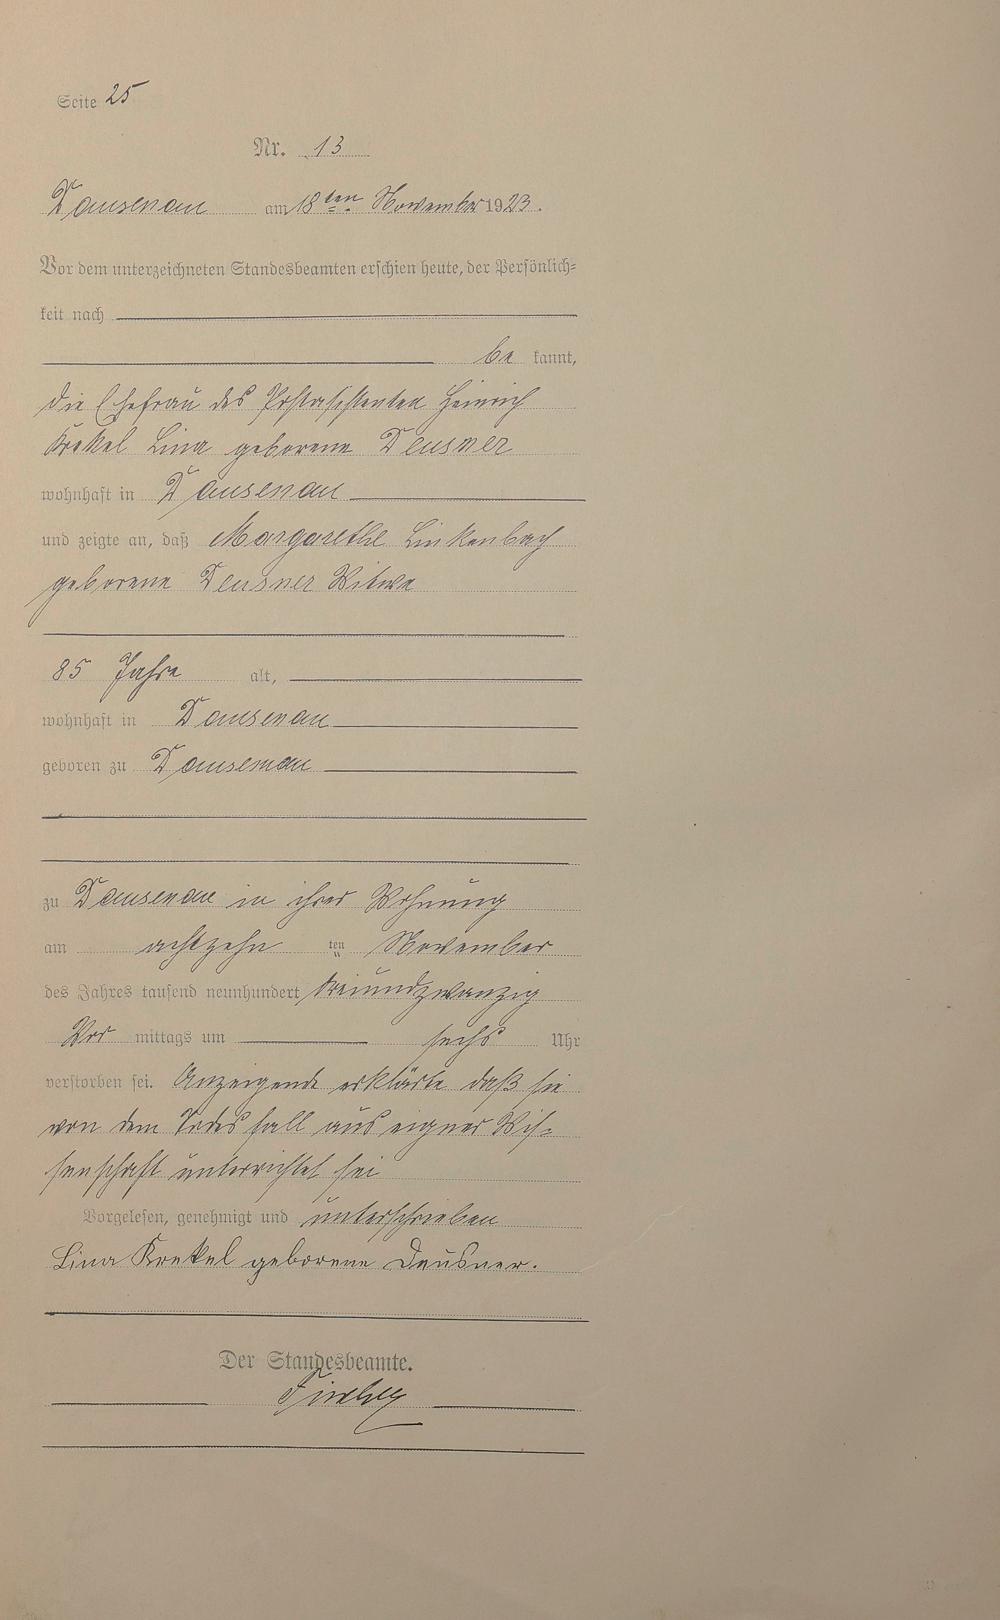 Seite 25
Nr. 13
Dausenau am 18ten November 1923.
Vor dem unterzeichneten Standesbeamten erschien heute, der Persönlich=
keit nach
be kannt,
die Ehefrau des Postassistenten Heinrich
Krekel Lina geborene Deusner
wohnhaft in Dausenau
und zeigte an, daß Margarethe Linkenbach
geborene Deusner Witwe
85 Jahre alt,
wohnhaft in Dausenau
geboren zu Dausenau
zu Dausenau in ihrer Wohnung
am achtzehn ten November
des Jahres tausend neunhundert dreiundzwanzig
Vor mittags um sechs Uhr
verstorben sei. Anzeigende erklärte daß sie
von dem Todesfall aus eigner Wis=
senschaft unterrichtet sei
Vorgelesen, genehmigt und unterschrieben
Lina Krekel geborene Deusner.
Der Standesbeamte.